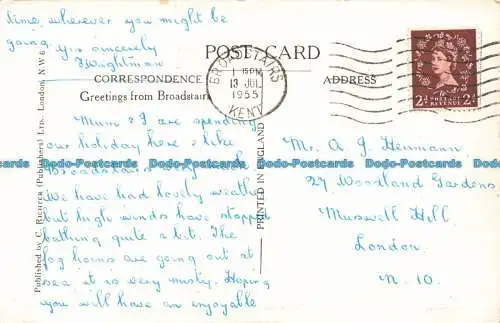 time, wherever you might be
going. Yrs sincerely
J Wrightman
POST CARD
CORRESPONDENCE
ADDRESS
Greetings from Broadstairs
BROADSTAIRS
1 15 PM
13 JUL
1955
KENT
2d POSTAGE REVENUE 2d
Mum & I are spending
our holiday here & like
Broadstairs very much.
We have had lovely weather
but high winds have stopped
bathing quite a bit. The
fog horns are going out at
sea, it is very misty. Hoping
you will have an enjoyable
Mr. A J Henmann
27 Woodland Gardens
Muswell Hill
London
N. 10.
Published by C. Richter (Publishers) Ltd. London, N.W 6
PRINTED IN ENGLAND
Dodo-Postcards Dodo-Postcards Dodo-Postcards Dodo-Postcards Dodo-Postcards